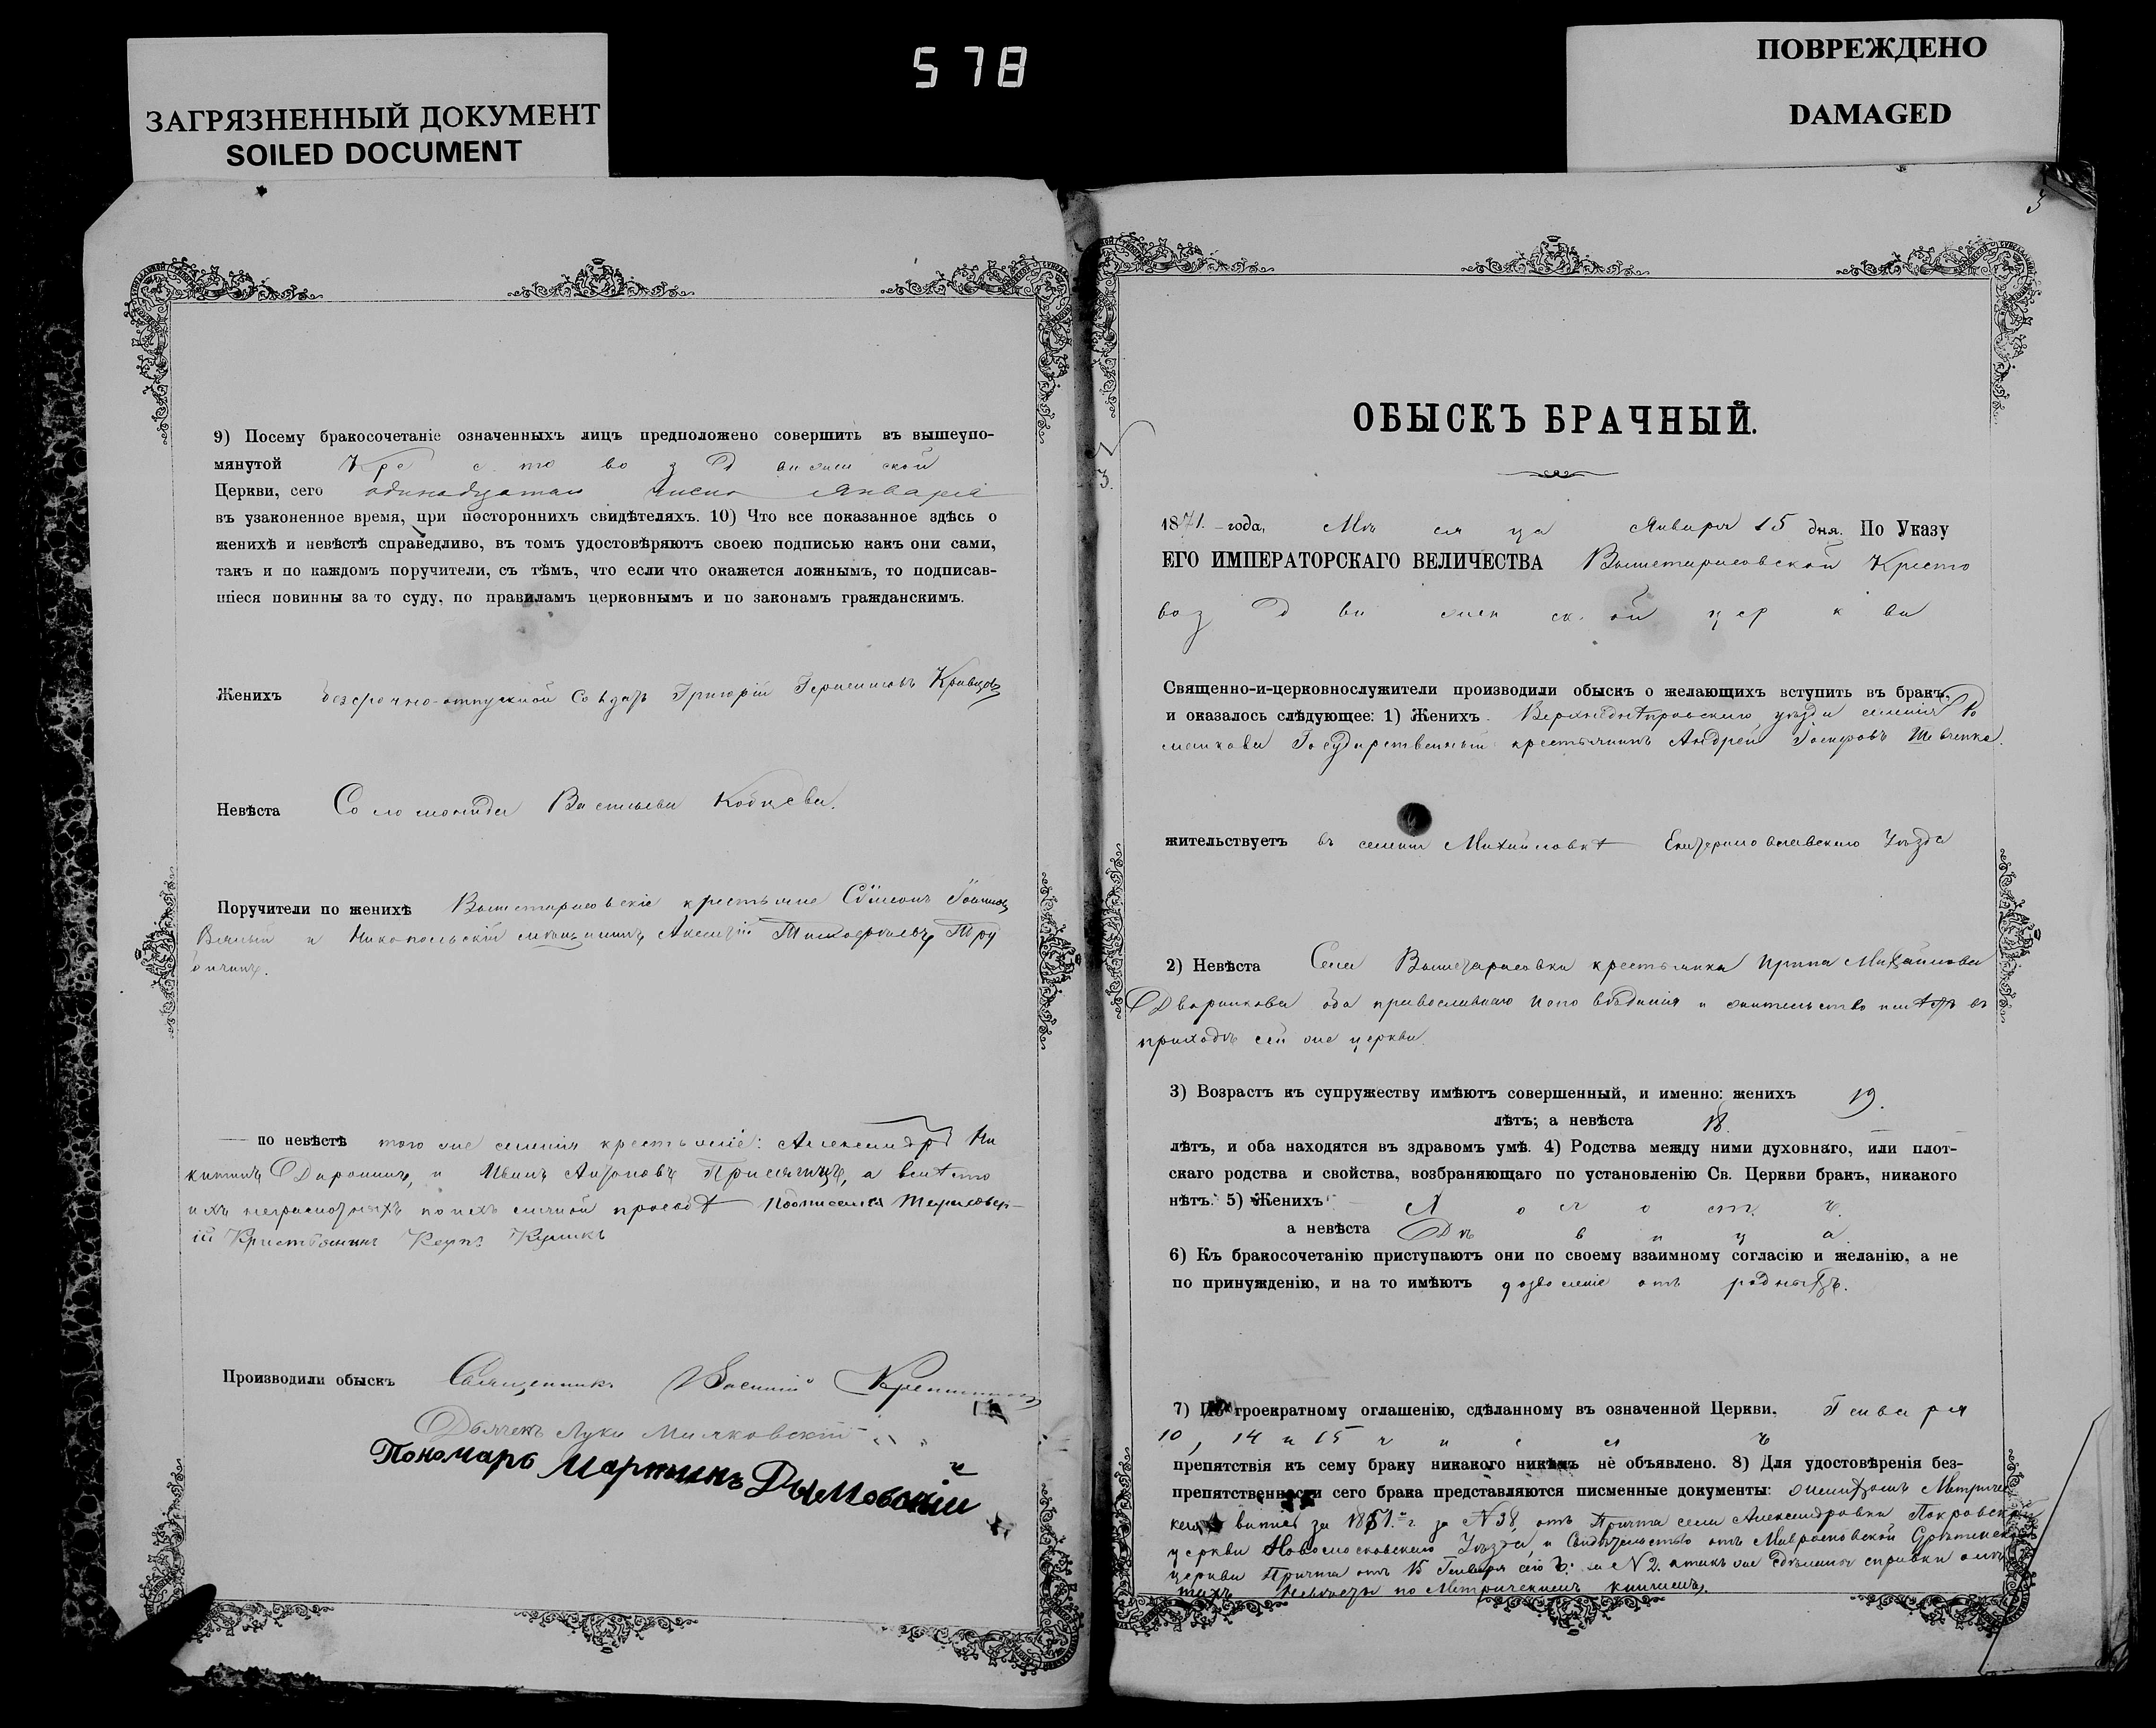 ЗАГРЯЗНЕННЫЙ ДОКУМЕНТ
SOILED DOCUMENT
578
ПОВРЕЖДЕНО
DAMAGED
9) Посему бракосочетаніе означенныхъ лицъ предположено совершить въ вышеупо-
мянутой Крестовоздвиженской
Церкви, сего одинадцатаго числа Января
въ узаконенное время, при постороннихъ свидѣтеляхъ. 10) Что все показанное здѣсь о
женихѣ и невѣстѣ справедливо, въ томъ удостовѣряютъ своею подписью какъ они сами,
такъ и по каждомъ поручители, съ тѣмъ, что если что окажется ложнымъ, то подписав-
шіеся повинны за то суду, по правиламъ церковнымъ и по законамъ гражданскимъ.
Женихъ безсрочно-отпускной Солдатъ Григорій Герасимовъ Кривцовъ
Невѣста Соломонида Васильева Кобцева.
Поручители по женихѣ Вышетарасовскіе крестьяне Сѵмеонъ
и Никопольскій мѣщанинъ Алексѣй
— по невѣстѣ того же селенія крестьяне: Александръ Ни
китинъ Доронинъ, и Иванъ Антоновъ а вмѣсто
ихъ неграмотныхъ по ихъ личной прозбѣ подписался Тарасовск-
ій Кристьянинъ Карпъ Куликъ
Производили обыскъ Священникъ Василій
Дьячекъ Лука Маяковскій
Пономарь Мартинъ Дымовскій
3
ОБЫСКЪ БРАЧНЫЙ.
3.
1871. года, Мѣсяца Января 15 дня. По Указу
ЕГО ИМПЕРАТОРСКАГО ВЕЛИЧЕСТВА Вышетарасовской Кресто
воздвиженской церкви
Священно-и-церковнослужители производили обыскъ о желающихъ вступить въ бракъ,
и оказалось слѣдующее: 1) Женихъ Верхнеднѣпровскаго уѣзда селенія Ро
манкова Государственный крестьянинъ Андрей Іосифовъ Шевченко.
жительствуетъ въ селеніи Михайловкѣ Екатеринославскаго Уѣзда
2) Невѣста Села Вышетарасовки крестьянка Ирина Михайлова
Дворникова оба православнаго исповѣданія и жительство имѣютъ въ
приходѣ сей же церкви.
3) Возрастъ къ супружеству имѣютъ совершенный, и именно: женихъ 19.
лѣтъ; а невѣста 18
лѣтъ, и оба находятся въ здравомъ умѣ. 4) Родства между ними духовнаго, или плот-
скаго родства и свойства, возбраняющаго по установленію Св. Церкви бракъ, никакого
нѣтъ. 5) Женихъ холостъ.
а невѣста Дѣвица.
6) Къ бракосочетанію приступаютъ они по своему взаимному согласію и желанію, а не
по принужденію, и на то имѣютъ дозволеніе отъ родныхъ.
7) По троекратному оглашенію, сдѣланному въ означенной Церкви, Генваря
10, 14 и 15 числъ
препятствія къ сему браку никакого никѣмъ не объявлено. 8) Для удостовѣренія без-
препятственности сего брака представляются писменные документы: Метричес
кая выпись за 1851. г. за N 38, отъ Причта села Александровки Покровской
церкви Новомосковскаго Уѣзда, и Свидѣтельство отъ Срѣтенской
церкви Причта отъ 15 Генваря сего г. за N 2. а также сдѣлана справка
невѣсты по Метрическимъ книгамъ.